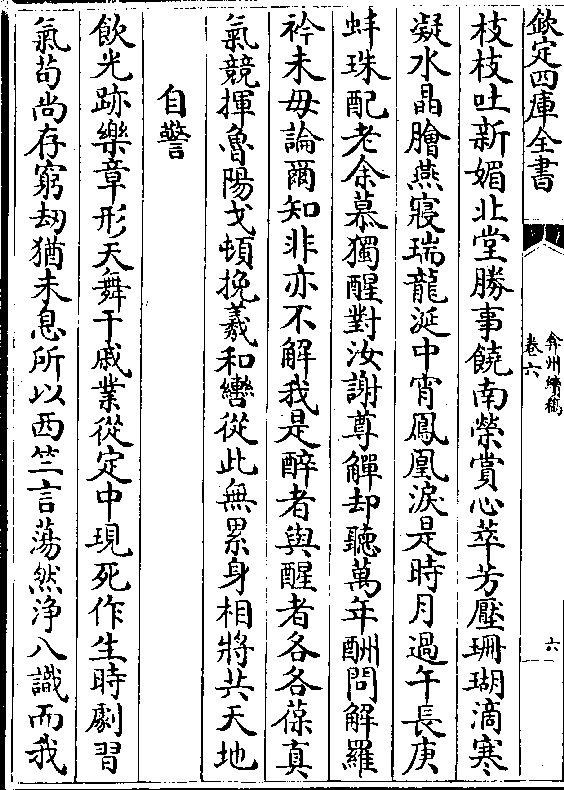 欽定四庫全書
弇州續稿
卷六
六
枝枝吐新媚北堂勝事饒南榮賞心萃芳壓珊瑚滴寒
凝水晶膾燕寢瑞龍涎中宵鳳凰淚是時月過午長庚
蚌珠配老余慕獨醒對汝謝尊觶却聽萬年酬問解羅
衿未毋論爾知非亦不解我是醉者與醒者各各葆真
氣競揮魯陽戈頓挽羲和轡從此無累身相將共天地
自警
飲光跡樂章形天舞干戚業從定中現死作生時劇習
氣苟尚存窮劫猶未息所以西竺言蕩然浄八識而我